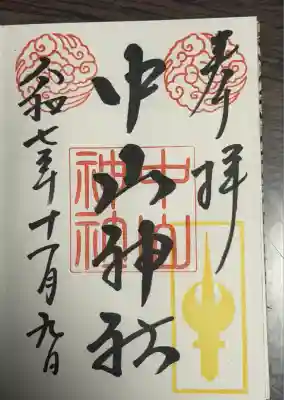 奉拝
中山神社
中山
神社
令和七年十一月九日